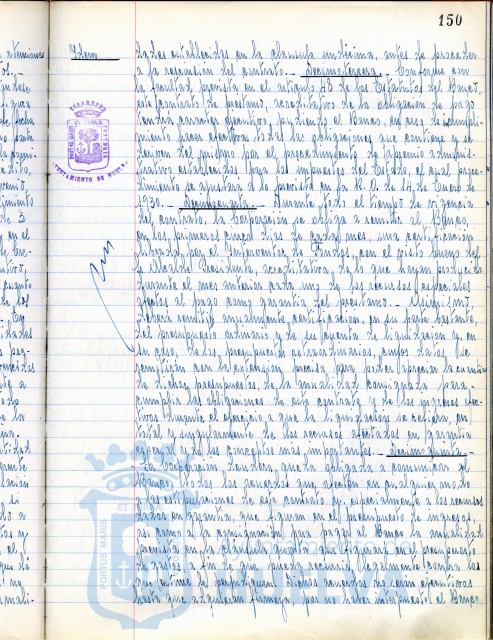 150
Idem
tadas establecidas en la cláusula undécima, antes de proceder
a la rescisión del contrato.- Decimotercera.- Conforme con
la facultad, prevista en el artículo 48 de los Estatutos del Banco,
este contrato de préstamo, acreditativo de la obligación de pago
tendrá carácter ejecutivo, pudiendo el Banco, en caso de incumpli-
miento hacer efectivas todas las obligaciones que contiene y se
deriven del mismo por el procedimiento de apremio adminis-
trativo establecido para los impuestos del Estado, el cual proce-
dimiento se ajustará a lo previsto en la R.O. de 14 de Enero de
1930. Decimocuarta.- Durante todo el tiempo de vigencia
del contrato, la Corporación se obliga a remitir al Banco,
en los primeros cinco días de cada mes, una certificación
librada por el Interventor de Fondos, con el visto bueno del
Sr. Alcalde Presidente, acreditativa de lo que hayan producido
durante el mes anterior cada uno de los recursos especiales
afectos al pago como garantía del préstamo.- Asimismo
deberá remitir anualmente certificación, en su parte bastante,
del presupuesto ordinario y de su cuenta de liquidación y, en
su caso, de los presupuestos extraordinarios, cuyos datos se
remitirán con la extensión precisa para poder apreciar la cuantía
de dichos presupuestos, de la anualidad consignada para
cumplir las obligaciones de este contrato y de los ingresos efec-
tivos durante el ejercicio a que la liquidación se refiera, en
total, y singularmente de los recursos afectados en garantía
y de los conceptos más importantes.- Decimoquinta.-
La Corporación deudora queda obligada a comunicar al
Banco todos los acuerdos que afecten en cualquier modo
a las estipulaciones de este contrato y especialmente a los recursos
dados en garantía, que figuran en el presupuesto de ingresos,
así como a la consignación para pagar al Banco la anualidad
prevista en la cláusula cuarta que figurará en el presupuesto
de gastos a fin de que pueda recurrir legalmente contra los
que estime le perjudiquen. Dichos acuerdos no serán ejecutivos
hasta que adquieran firmeza, por no haber interpuesto el Banco
AYUNTAMIENTO DE HUELVA
PORTUS MARIS